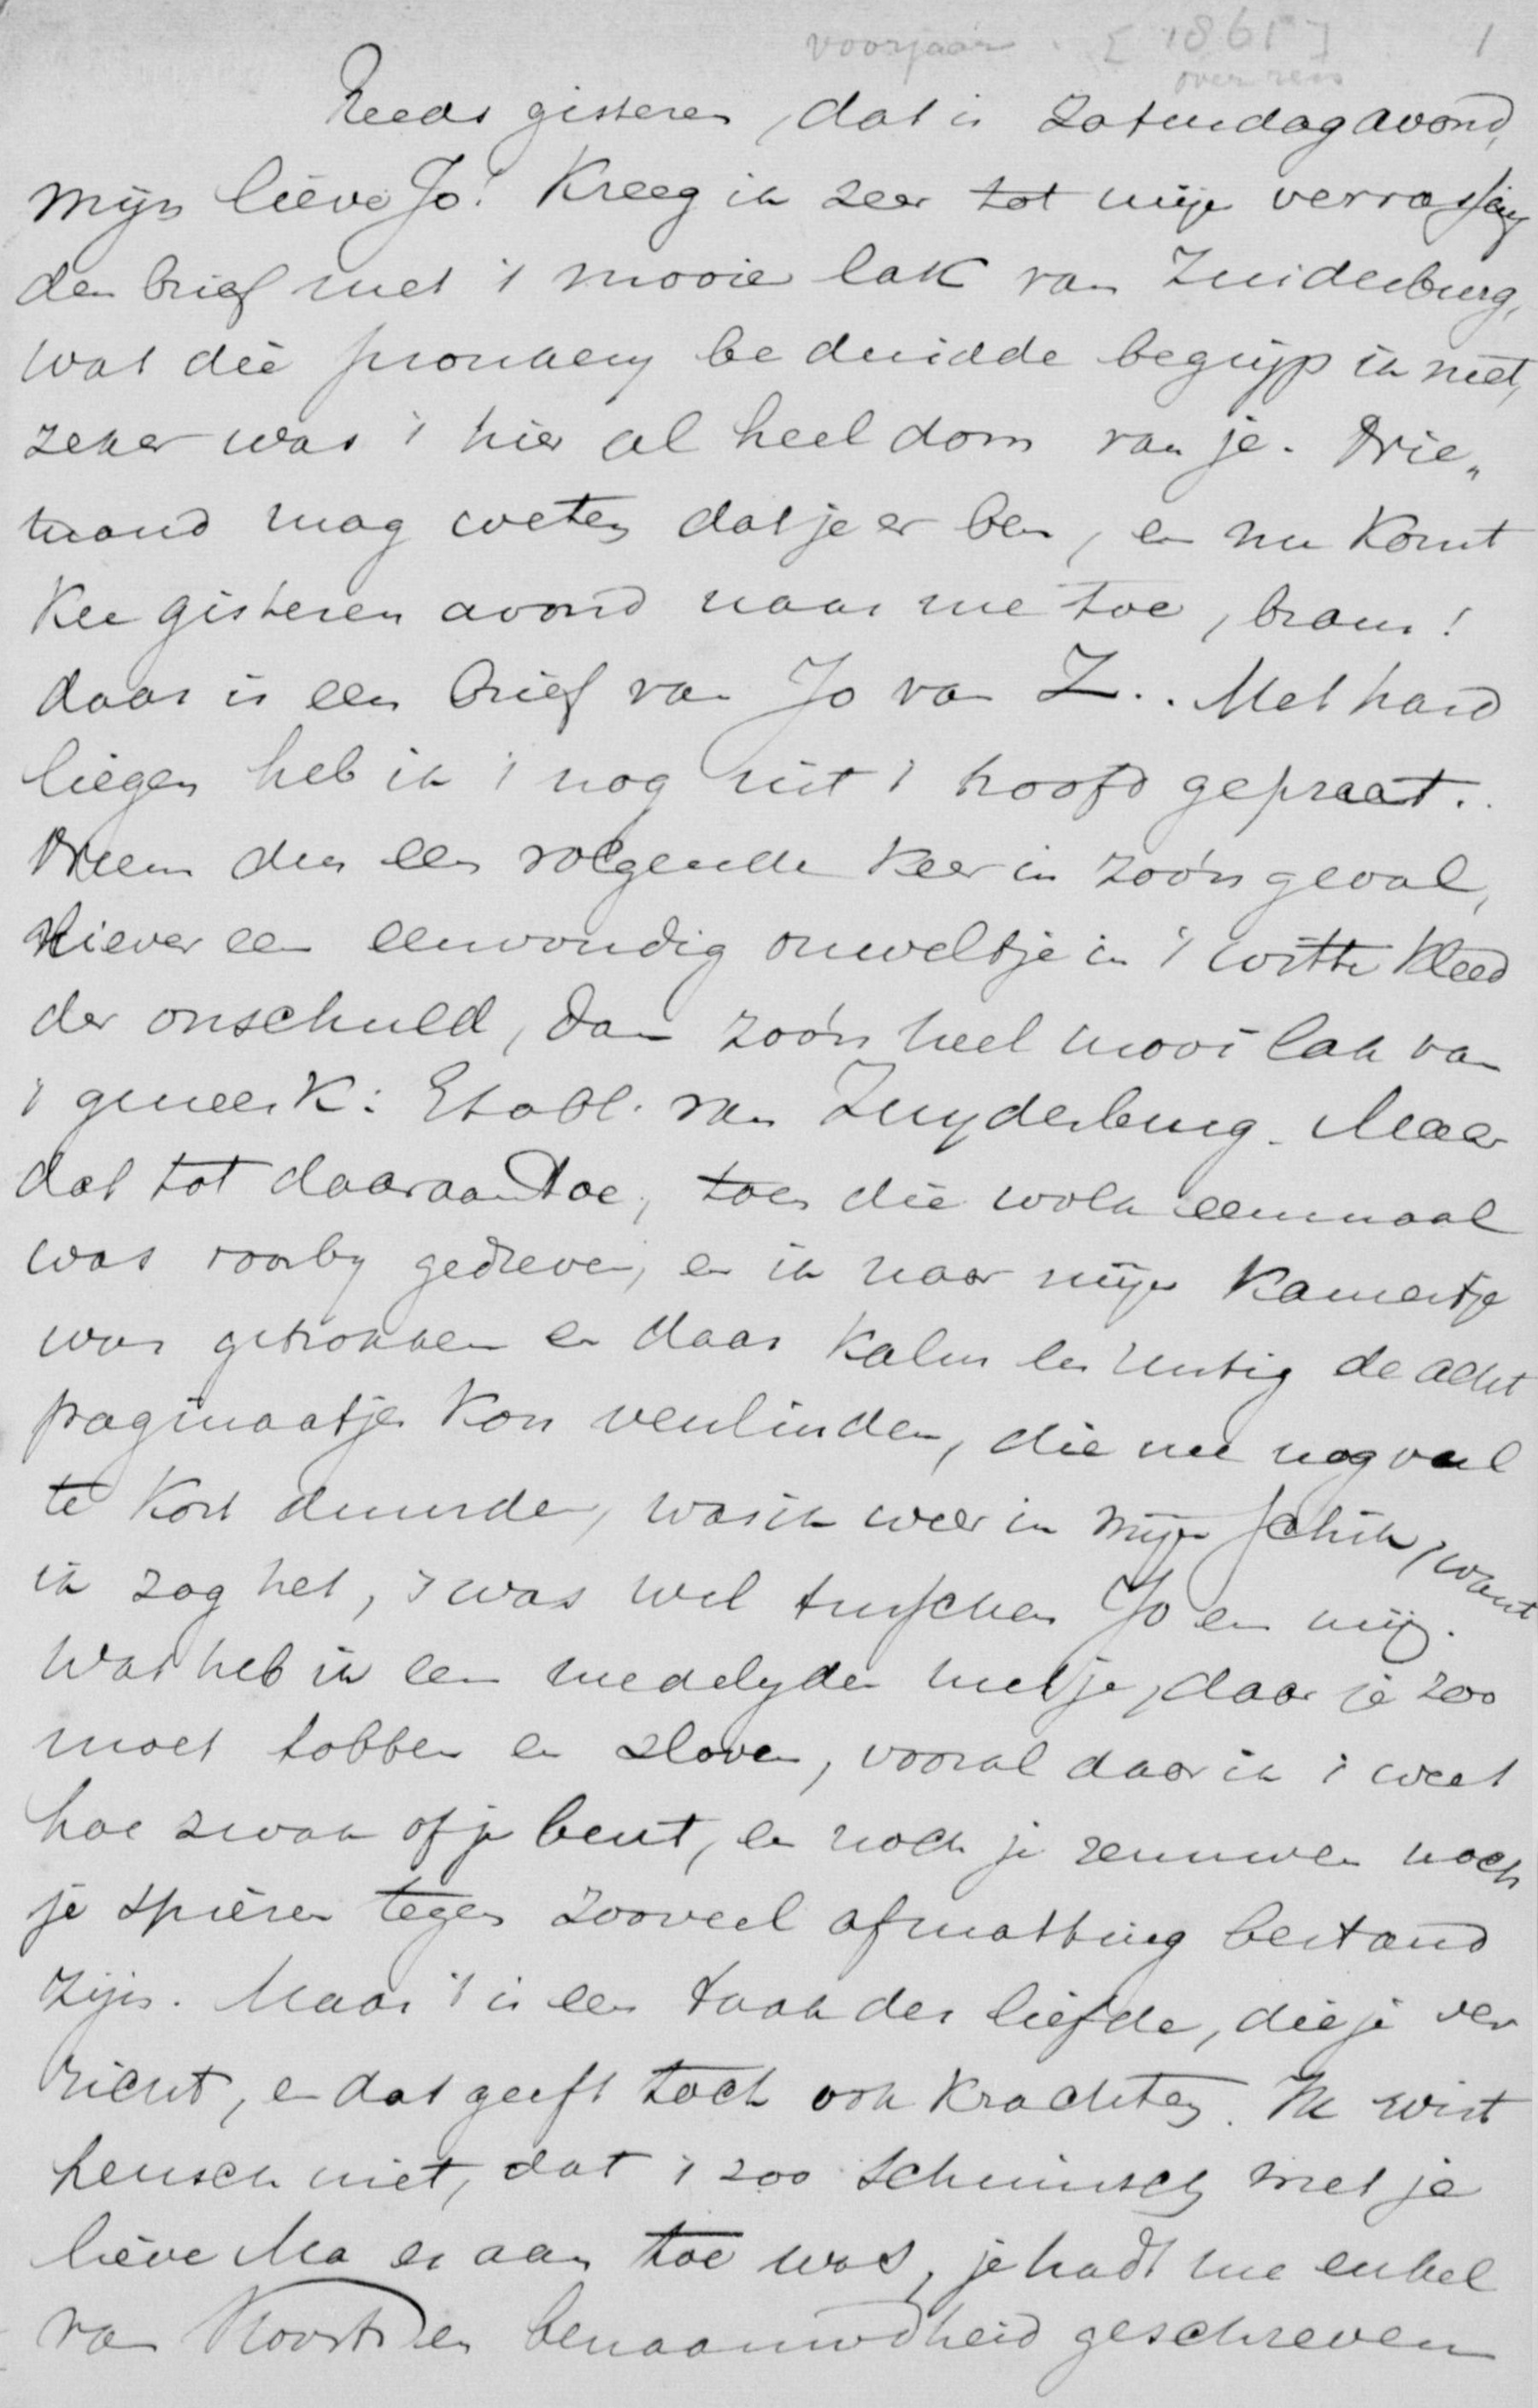 voorjaar. [1865] 1
over reis
Reeds gisteren, dat is Zaturdag avond,
mijn lieve Jo! Kreeg ik zeer tot mijn verrassing
den brief met 't mooie lak van Zuiderburg,
wat die pronkery beduidde begrijp ik niet,
zeker was 't hier al heel dom van je. Nie„
mand mag weten dat je er ben, en nu komt
Kee gisteren avond naar me toe, bram!
daar is een brief van Jo van Z.. Met hard
liegen heb ik 't nog uit 't hoofd gepraat..
Neem dus een volgende keer in zoo'n geval,
liever een eenvoudig ouweltje in 't witte kleed
der onschuld, dan zoo'n heel mooi lak van
't gemerk: Etabl. van Zuyderburg. Maar
dat tot daaraan toe, toen die wolk eenmaal
was voorby gedreven, en ik naar mijn kamertje
was getrokken en daar kalm en rustig de acht
paginaatjes kon verslinden, die me nog veel
te kort duurden, was ik weer in mijn schik, want
ik zag het, 't was wel tusschen Jo en mij.
Wat heb ik een medelyden met je, daar je zoo
moet tobben en sloven, vooral daar ik 't weet
hoe zwak of je bent, en noch je zenuwen noch
je spieren tegen zooveel afmatting bestand
zijn. Maar 't is een taak der liefde, die je ver
richt, en dat geeft toch ook krachten. Ik wist
heusch niet, dat 't zoo schuinsch met je
lieve Ma er aan toe was, je hadt me enkel
van Koorts en benaauwdheid geschreven